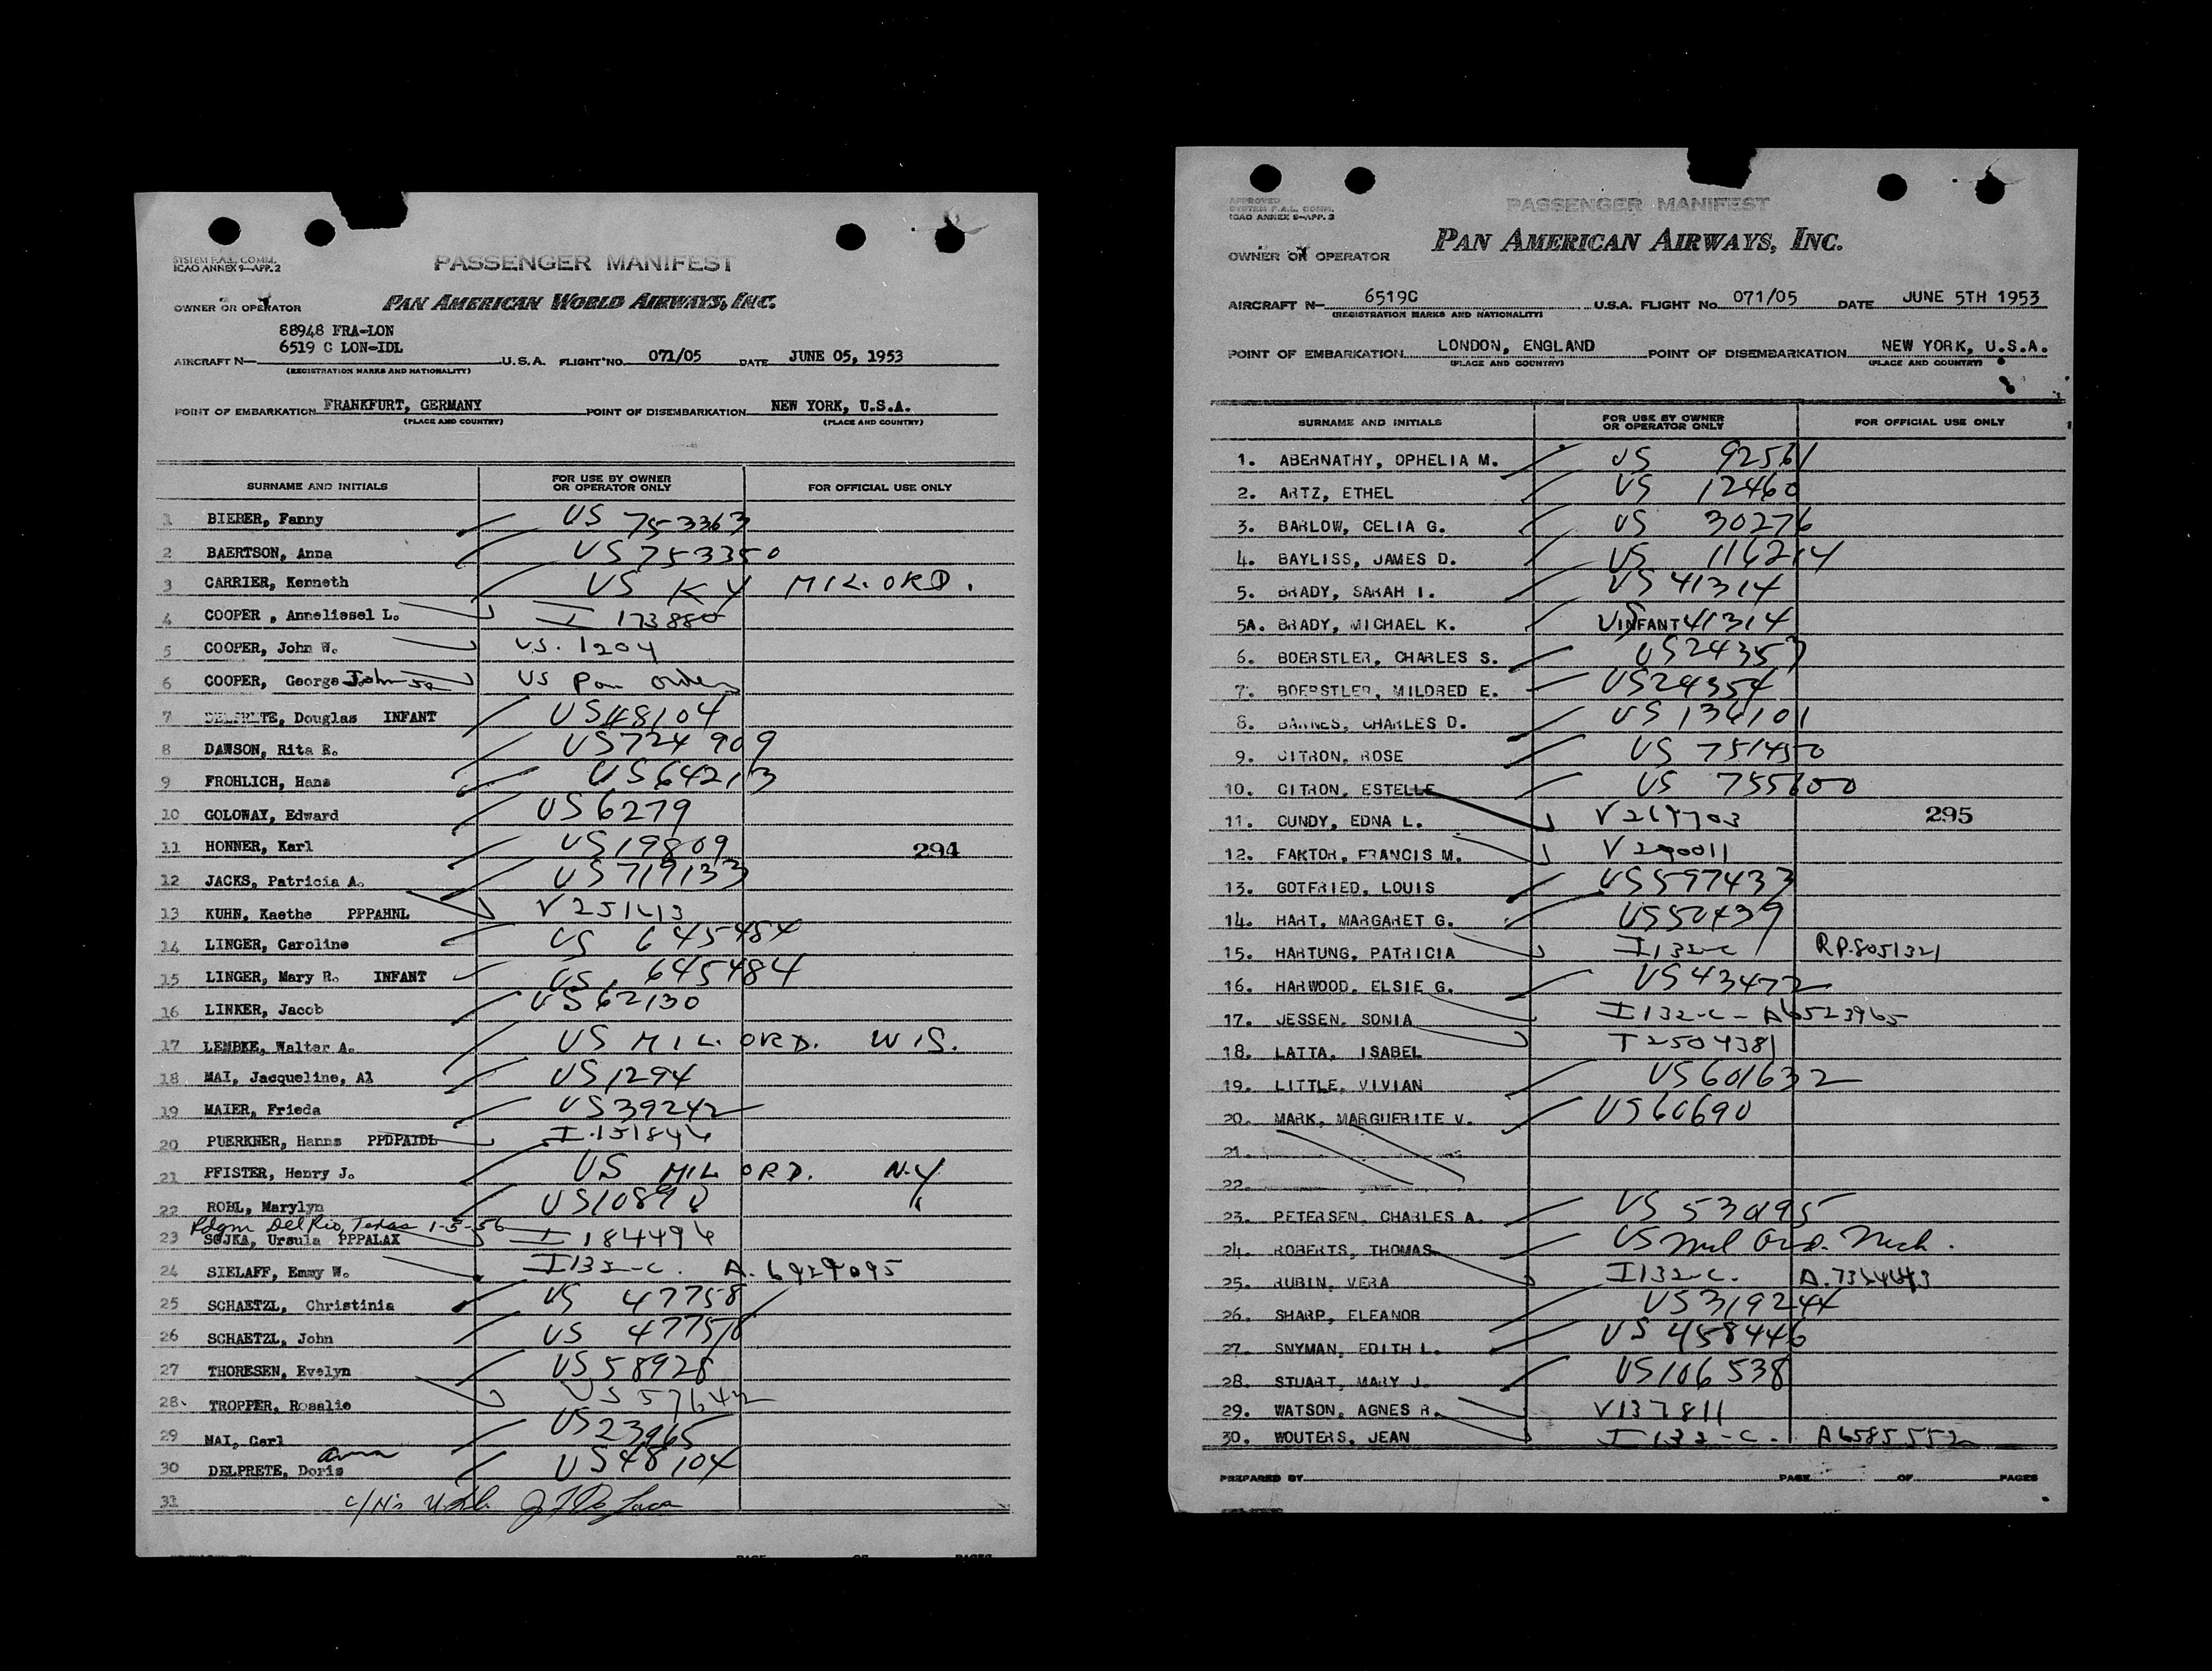 SYSTEM F.A.L. COMM.
ICAO ANNEX 9—APP. 2
PASSENGER MANIFEST
OWNER OR OPERATOR PAN AMERICAN WORLD AIRWAYS, INC.
88948 FRA-LON
6519 C LON-IDL
AIRCRAFT N— U.S.A. FLIGHT NO. 071/05 DATE JUNE 05, 1953
(REGISTRATION MARKS AND NATIONALITY)
POINT OF EMBARKATION FRANKFURT, GERMANY POINT OF DISEMBARKATION NEW YORK, U.S.A.
(PLACE AND COUNTRY) (PLACE AND COUNTRY)
SURNAME AND INITIALS FOR USE BY OWNER OR OPERATOR ONLY FOR OFFICIAL USE ONLY
1 BIEBER, Fanny US 753363
2 BAERTSON, Anna US 753350
3 CARRIER, Kenneth US KY MIL. ORD.
4 COOPER , Anneliesel L. I 173880
5 COOPER, John W. U.S. 1204
6 COOPER, George John US
7 DELPRETE, Douglas INFANT US 48104
8 DAWSON, Rita E. US 724909
9 FROHLICH, Hans US 64213
10 GOLOWAY, Edward US 6279
11 HONNER, Karl US 19809 294
12 JACKS, Patricia A. US 719133
13 KUHN, Kaethe PPPAHNL V 251613
14 LINGER, Caroline US 645484
15 LINGER, Mary R. INFANT US 645484
16 LINKER, Jacob US 62130
17 LEMBKE, Walter A. US MIL. ORD. WIS.
18 MAI, Jacqueline, Al US 1294
19 MAIER, Frieda US 39242
20 PUERKNER, Hanns PPDPAIDL I 151846
21 PFISTER, Henry J. US MIL ORD. N.Y
22 ROBL, Marylyn US 10890 "
Rdgm Del Rio, Texas 1-5-56
23 SOJKA, Ursula PPPALAX I 184496
24 SIELAFF, Emmy W. I 132-C. A. 6929095
25 SCHAETZL, Christinia US 47758
26 SCHAETZL, John US 47758
27 THORESEN, Evelyn US 58928
28. TROPPER, Rosalie US 57642
29 MAI, Carl US 23965
30 DELPRETE, Doris Anna US 48104
31
APPROVED
SYSTEM F.A.L. COMM.
ICAO ANNEX 9—APP. 2
PASSENGER MANIFEST
OWNER OR OPERATOR PAN AMERICAN AIRWAYS, INC.
AIRCRAFT N— 6519C U.S.A. FLIGHT No. 071/05 DATE JUNE 5TH 1953
(REGISTRATION MARKS AND NATIONALITY)
POINT OF EMBARKATION LONDON, ENGLAND POINT OF DISEMBARKATION NEW YORK, U.S.A.
(PLACE AND COUNTRY) (PLACE AND COUNTRY)
SURNAME AND INITIALS FOR USE BY OWNER OR OPERATOR ONLY FOR OFFICIAL USE ONLY
1. ABERNATHY, OPHELIA M. US 92561
2. ARTZ, ETHEL US 12460
3. BARLOW, CELIA G. US 30276
4. BAYLISS, JAMES D. US 116214
5. BRADY, SARAH I. US 41314
5A. BRADY, MICHAEL K. US INFANT 41314
6. BOERSTLER, CHARLES S. US 24353
7. BOERSTLER, MILDRED E. US 24354
8. BARNES, CHARLES D. US 136101
9. CITRON, ROSE US 751450
10. CITRON, ESTELLE US 755600
11. CUNDY, EDNA L. V 267703 295
12. FAKTOR, FRANCIS M. V 290011
13. GOTFRIED, LOUIS US 597433
14. HART, MARGARET G. US 50439
15. HARTUNG, PATRICIA I 132-C R.P. 8051321
16. HARWOOD, ELSIE G. US 43472
17. JESSEN, SONIA I 132-C - A6523965
18. LATTA, ISABEL I 2504381
19. LITTLE, VIVIAN US 601632
20. MARK, MARGUERITE V. US 60690
21.
22.
23. PETERSEN, CHARLES A. US 530195
24. ROBERTS, THOMAS US Mil Ord. Mich.
25. RUBIN, VERA I 132-C. A. 7354643
26. SHARP, ELEANOR US 319244
27. SNYMAN, EDITH L. US 458446
28. STUART, MARY J. US 106538
29. WATSON, AGNES R. V 137811
30. WOUTERS, JEAN I 132-C. A6585552
PREPARED BY PAGE OF PAGES